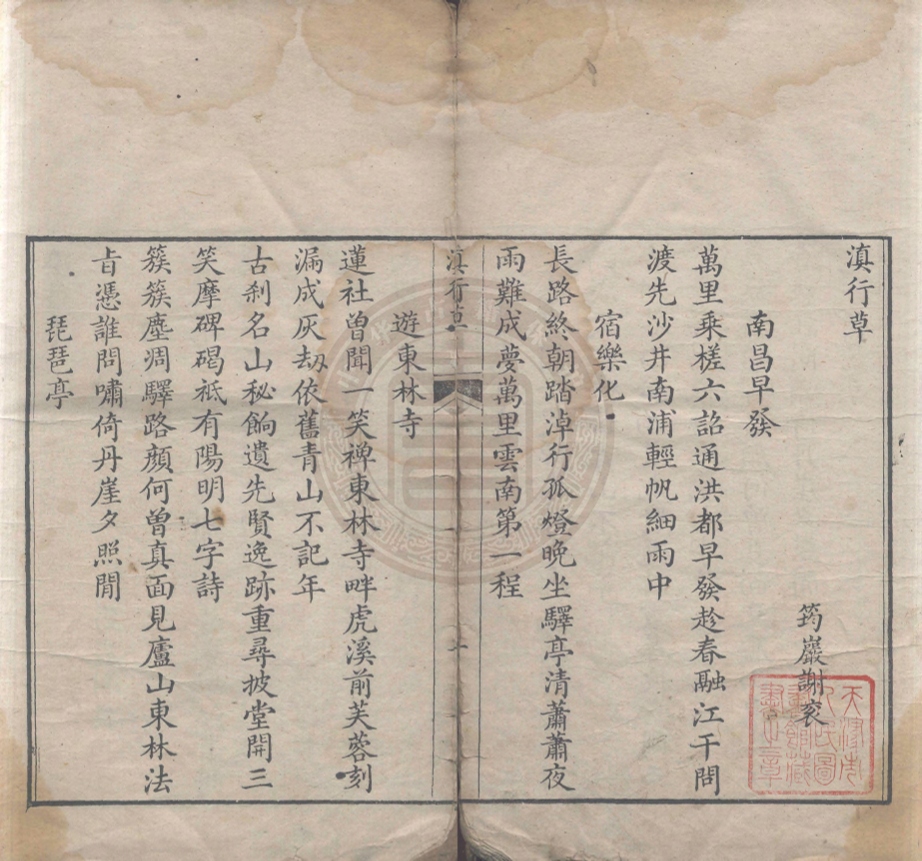 滇行草
筠巖謝
南昌早發
萬里乘槎六詔通洪都早發趁春融江干問
渡先沙井南浦輕帆細雨中
宿樂化
長路終朝踏淖行孤燈晚坐驛亭清蕭蕭夜
雨難成夢萬里雲南第一程
滇行草
一
遊東林寺
蓮社曾聞一笑禪東林寺畔虎溪前芙蓉刻
漏成灰刧依舊青山不記年
古刹名山秘餉遺先賢逸跡重尋披堂開三
笑摩碑碣祇有陽明七字詩
簇簇塵凋驛路顏何曾真面見廬山東林法
旨憑誰問嘯倚丹崖夕照閒
琵琶亭
天津市
人民圖
書館藏
書之章